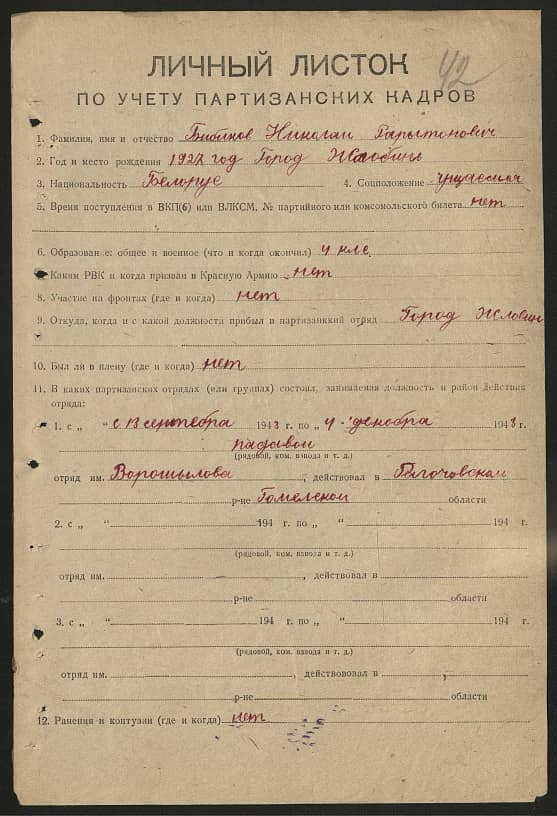 42
ЛИЧНЫЙ ЛИСТОК
ПО УЧЕТУ ПАРТИЗАНСКИХ КАДРОВ
1. Фамилия, имя и отчество Бибиков Николай
2. Год и место рождения год Город Жлобин
3. Национальность Белорус 4. Соцположение
5. Время поступления в ВКП(б) или ВЛКСМ, № партийного или комсомольского билета нет
6. Образование: общее и военное (что и когда окончил) 4 клс
7. Каким РВК и когда призван в Красную Армию нет
8. Участие на фронтах (где и когда) нет
9. Откуда, когда и с какой должности прибыл в партизанкий отряд Город Жлобин
10. Был ли в плену (где и когда) нет
11. В каких партизанских отрядах (или группах) состоял, занимления должность и район действия
отряда:
1. с „ “ с 13 сентебра 1943 г. по „ 4 “ декобра 1943 г.
радавой
(рядовой, ком. взвода и т. д.)
отряд им. Ворошылова, действовал в
р-не Гомелской области
2. с „ “ 194 г. по „ “ 194 г.
(рядовой, ком. взвода и т. д.)
отряд им. , действовал в
р-не области
3. с „ “ 194 г. по „ “ 194 г.
(рядовой, ком. взвода и т. д.)
отряд им. , действововал в
р-не области
12. Ранения и контузии (где и когда) нет